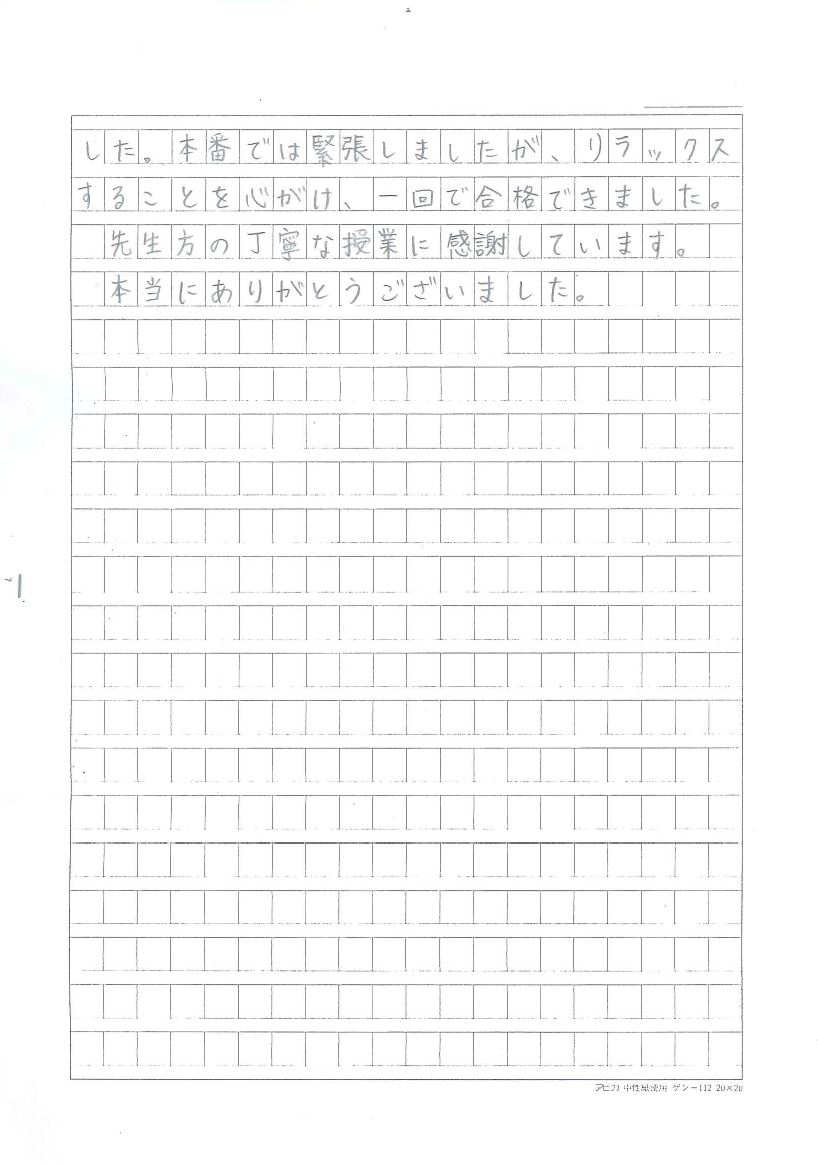 した。本番では緊張しましたが、リラックス
することを心がけ、一回で合格できました。
先生方の丁寧な授業に感謝しています。
本当にありがとうございました。
アピカ 中性紙使用 ゲンー112 20×20